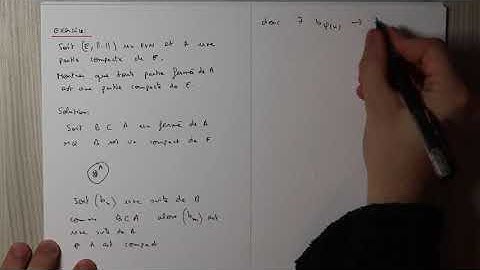 Exercice
Soit (E, ||.||) un evn et A une
partie compacte de E.
Montrer que toute partie fermée de A
est une partie compacte de E.
Solution:
Soit B ⊂ A un fermé de A
MQ B est un compact de E
A
B
Soit (bn) une suite de B
comme B ⊂ A alors (bn) est
une suite de A
A est compact
donc ∃ bφ(n) →